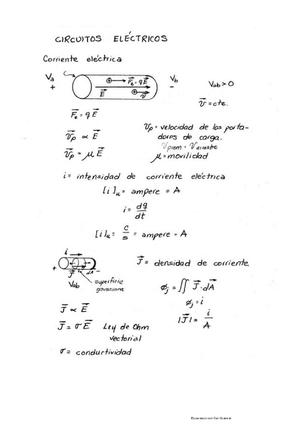 CIRCUITOS ELÉCTRICOS
Corriente eléctrica
Va + Vb -
F⃗e = q E⃗
E⃗
Vab > 0
v⃗ = cte.
F⃗e = q E⃗
v⃗p ∝ E⃗
v⃗p = μ E⃗
Vp = velocidad de los porta-
dores de carga.
Vprom = Varrastre
μ = movilidad
i = intensidad de corriente eléctrica
[i]u = ampere = A
i = dq/dt
[i]u = C/s = ampere = A
i
Vab
superficie
gaussiana
J⃗ = densidad de corriente
ϕj = ∬ J⃗ · dA⃗
ϕj = i
|J⃗| = i/A
J⃗ ∝ E⃗
J⃗ = σ E⃗ Ley de Ohm
vectorial
σ = conductividad